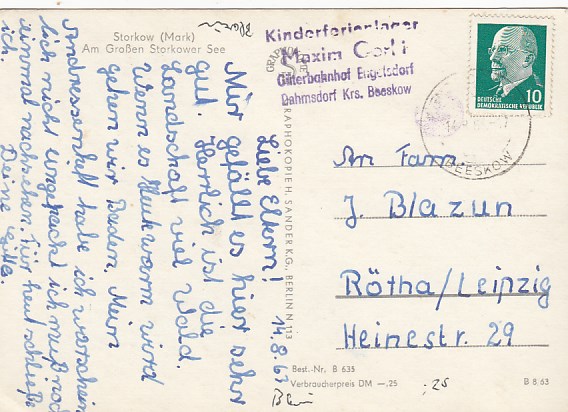 Storkow (Mark)
Am Großen Storkower See
Liebe Eltern! 14.8.63
Mir gefällt es hier sehr
gut. Herrlich ist die
Landschaft viel Wald.
wenn es Heut warm wird
gehen wir Baden. Mein
Andressenheft habe ich warschein
lich nicht eingepackt ich muß noch
einmal nachsehen. Für heut schließe
ich. Deine
GRAPHOKOPIE H. SANDER K.G., BERLIN N 113
Kinderferienlager
Maxim Gorki
Güterbahnhof Engelsdorf
Dahmsdorf Krs. Beeskow
DEUTSCHE
DEMOKRATISCHE REPUBLIK
10
BEESKOW
An Fam.
J. Blazun
Rötha/Leipzig
Heinestr. 29
Best.-Nr. B 635
Verbraucherpreis DM —,25
-,25
B 8.63